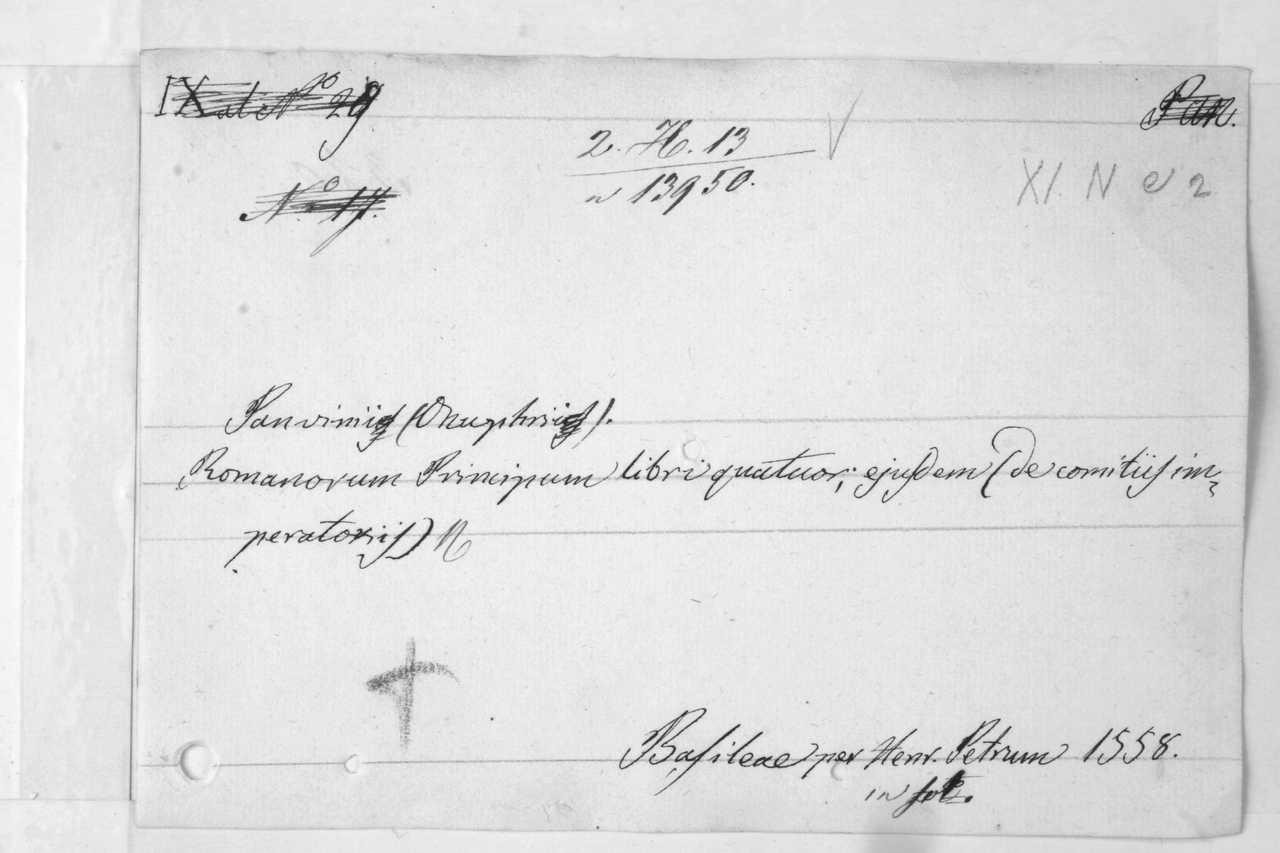 IX al N° 29
Pan.
2. H. 13
13950.
XI. N e 2
N° 17.
Panvinii (Onuphrii).
Romanorum Principum libri quatuor; ejusdem (de comitiis im-
peratoriis)
Basileae per Henr. Petrum 1558.
in fol.